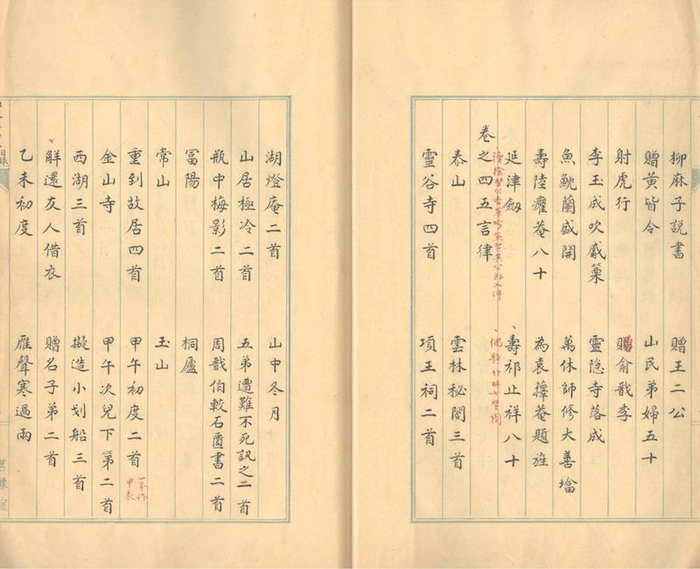 柳麻子説書　贈王二公
贈黃皆令　山民弟婦五十
射虎行　贈俞戩季
李玉成吹觱篥　靈隐寺落成
魚魫蘭盛開　萬休師修大善墖
壽陸癯菴八十　為袁籜菴題旌
延津劔　壽祁止祥八十
卷之四五言律
泰山　雲林秘閣三首
靈谷寺四首　項王祠二首
湖燈庵二首　山中冬月
山居極冷二首　五弟遭難不死訊之二首
瓶中梅影二首　周戩伯較石匱書二首
富陽　桐廬
常山　玉山
重到故居四首　甲午初度二首
一本作甲辰
金山寺　甲午次兒下第二首
西湖三首　擬造小划船三首
解還友人借衣　贈名子弟二首
乙未初度　雁聲寒過雨